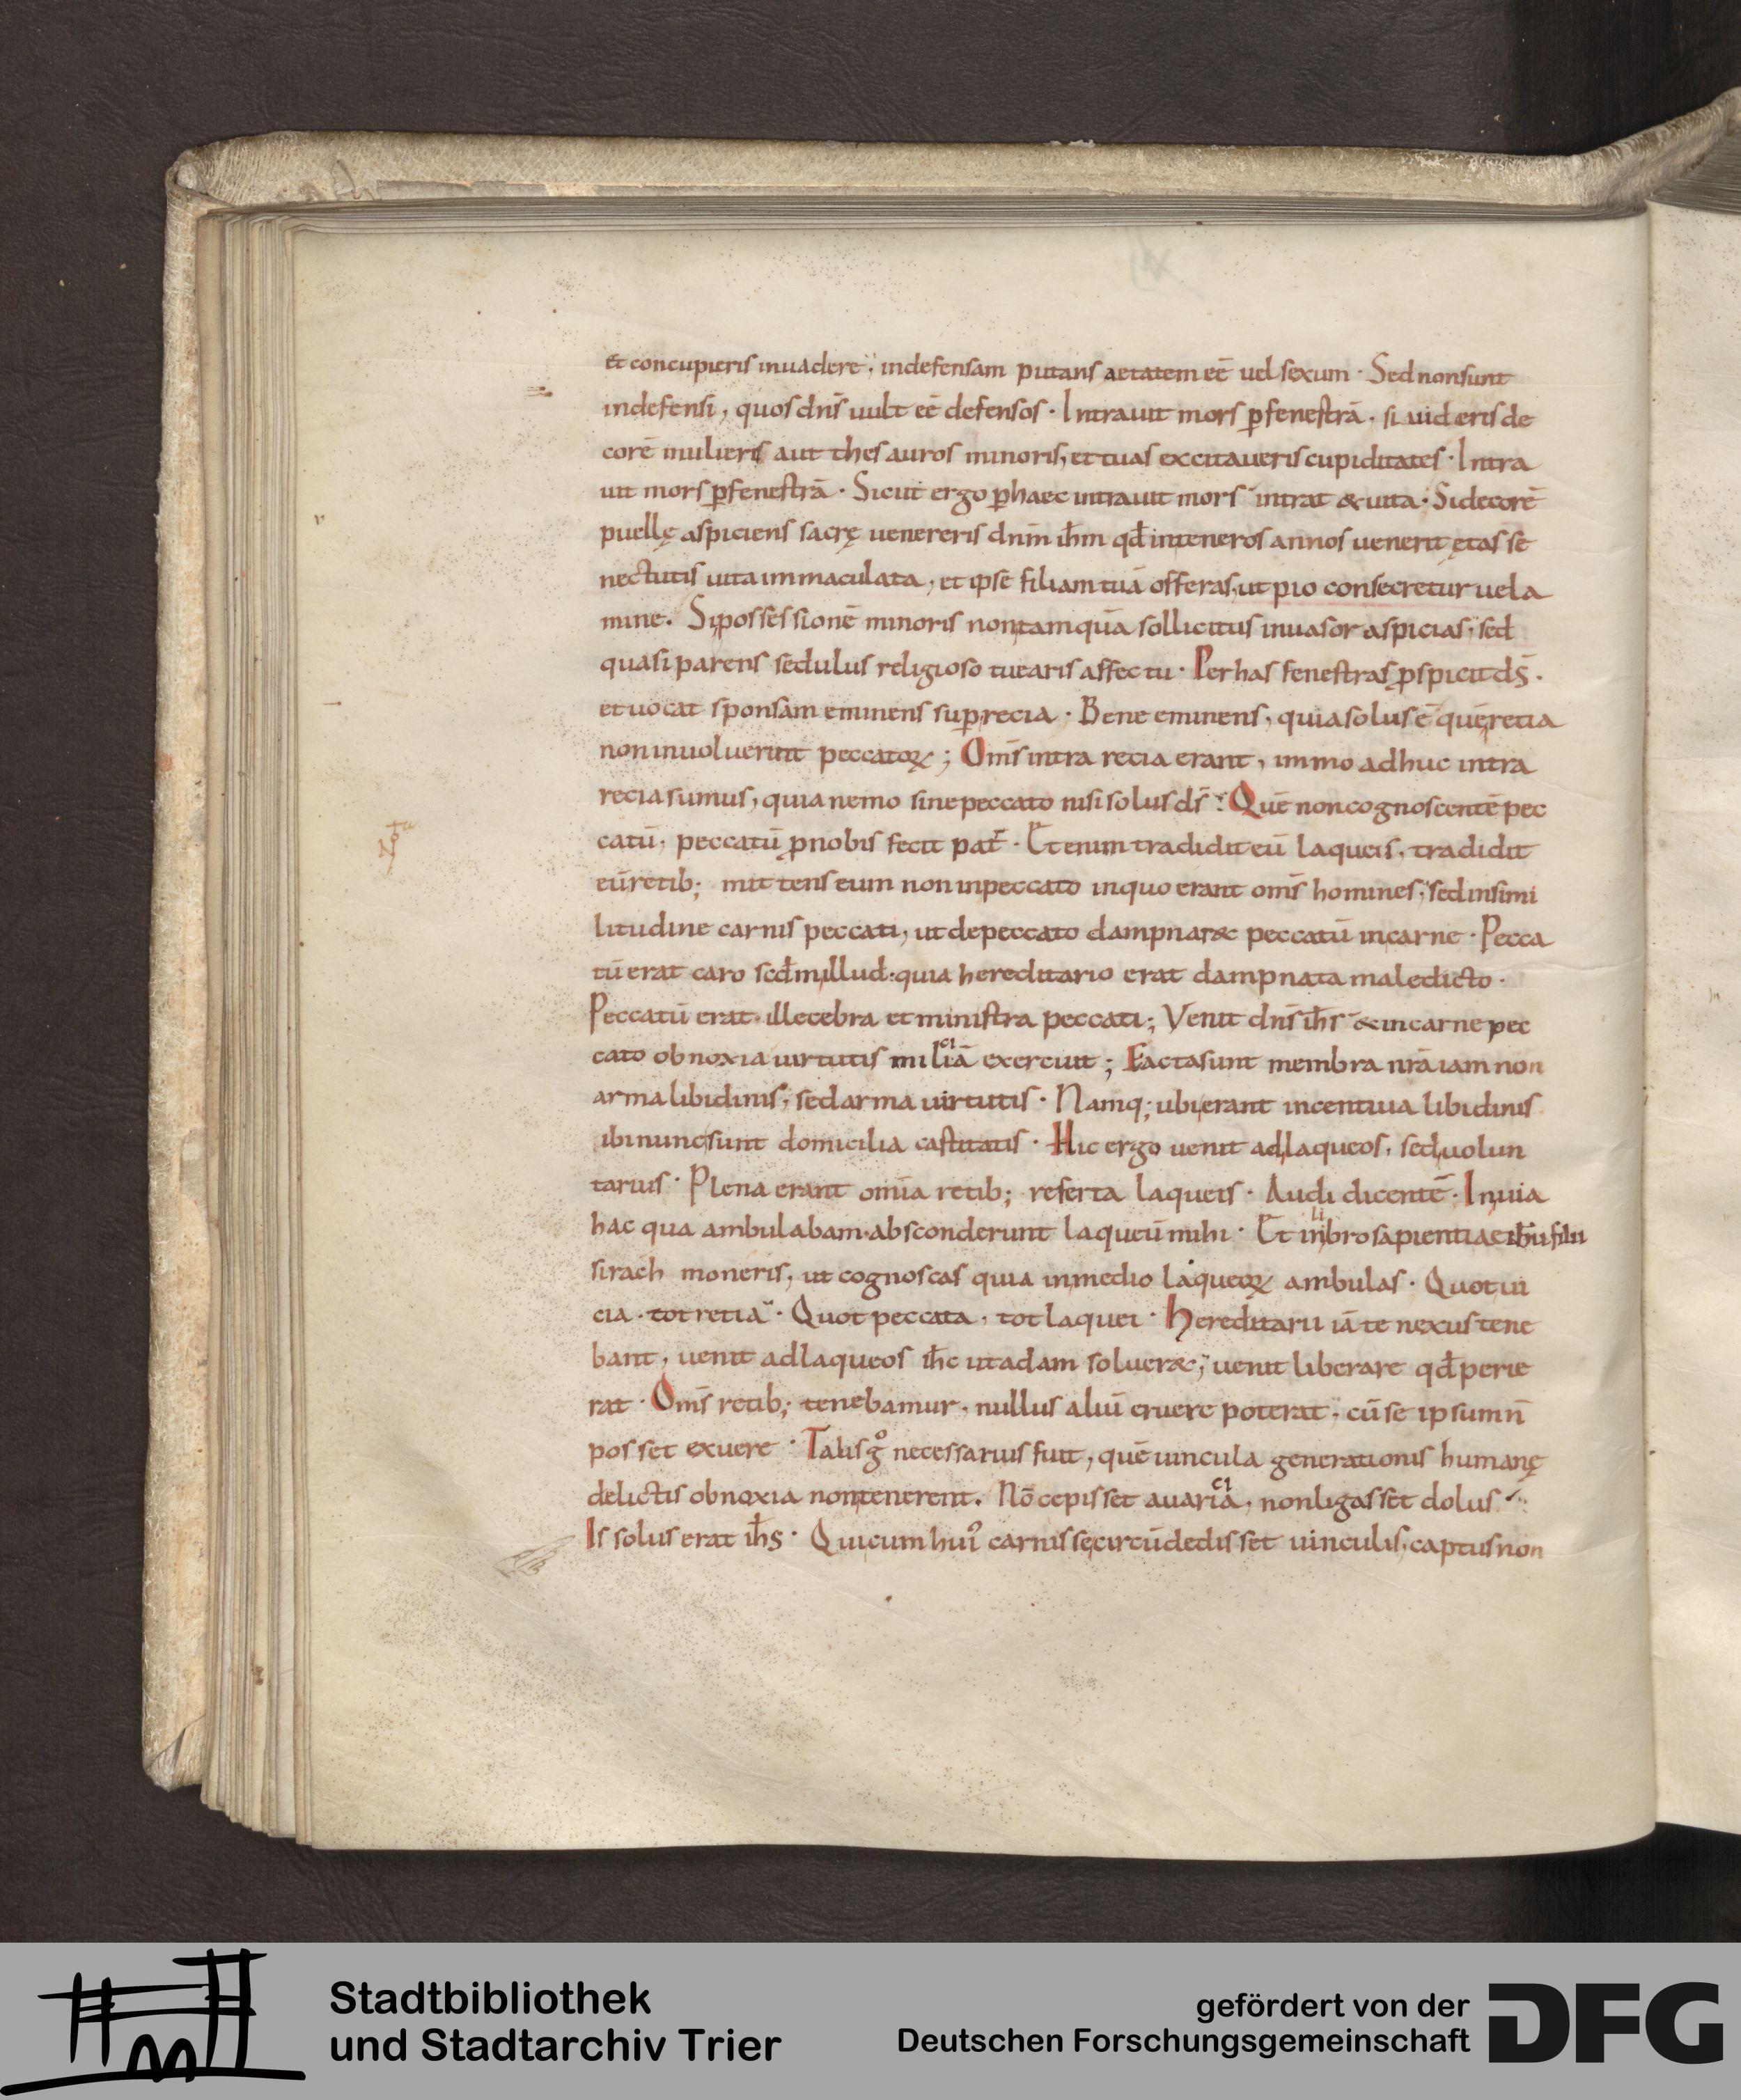 et concupieris inuadere; indefensam putans aetatem eē uel sexum · Sed non sunt
indefensi, quos dns̄ uult eē defensos · Intrauit mors ꝑ fenestrā · si uideris de
corē mulieris aut thesauros minoris, et tuas excitaueris cupiditates · Intra
uit mors ꝑ fenestrā · Sicut ergo ꝑ haec intrauit mors intrat & uita · Si decorē
puellę aspiciens sacrę uenereris dnm̄ ih̄m qd̄ in teneros annos uenerit ętas se
nectutis uita immaculata, et ipse filiam tuā offeras, ut pio consecretur uela
mine. Si possessionē minoris non tam quā sollicitus inuasor aspicias, sed
quasi parens sedulus religioso tuearis affectu · Per has fenestras ꝓspicit ds̄ ·
et uocat sponsam eminens suꝑ recia · Bene eminens, quia solus ē quē retia
non inuoluerunt peccatoꝝ; Oms̄ intra recia erant, immo adhuc intra
recia sumus, quia nemo sine peccato nisi solus ds̄ · Quē non cognoscentē pec
catū, peccatū ꝓ nobis fecit pat̄ · Et enim tradidit eū laqueis, tradidit
eū retib; mittens eum non in peccato in quo erant oms̄ homines, sed in simi
litudine carnis peccati, ut de peccato dampnar& peccatū in carne · Pecca
tū erat caro scd̄m illud · quia hereditario erat dampnata maledicto ·
Peccatū erat · illecebra et ministra peccati; Venit dns̄ ih̄s & in carne pec
cato obnoxia uirtutis miliciā exercuit; Facta sunt membra nr̄a iam non
arma libidinis, sed arma uirtutis · Namq; ubi erant incentiua libidinis
ibi nunc sunt domicilia castitatis · Hic ergo uenit ad laqueos, sed uolun
tarius · Plena erant omīa retib; referta laqueis · Audi dicentē · In uia
hac qua ambulabam · absconderunt laqueū mihi · Et in libro sapientiae ih̄u filii
sirach moneris, ut cognoscas quia in medio laqueoꝝ ambulas · Quot ui
cia · tot retia · Quot peccata, tot laquei · Hereditarii iā te nexus tene
bant, uenit ad laqueos ih̄c ut adam soluer&; uenit liberare qd̄ perie
rat · Oms̄ retib; tenebamur, nullus aliū eruere poterat, cū se ipsum n̄
posset exuere · Talis gͦ necessarius fuit, quē uincula generationis humanę
delictis obnoxia non tenerent. Nō cepisset auariciā, non ligasset dolus
Is solus erat ih̄s · Qui cum huiꝰ carnis se circūdedisset uinculis, captus non
Stadtbibliothek
und Stadtarchiv Trier
gefördert von der
Deutschen Forschungsgemeinschaft
DFG